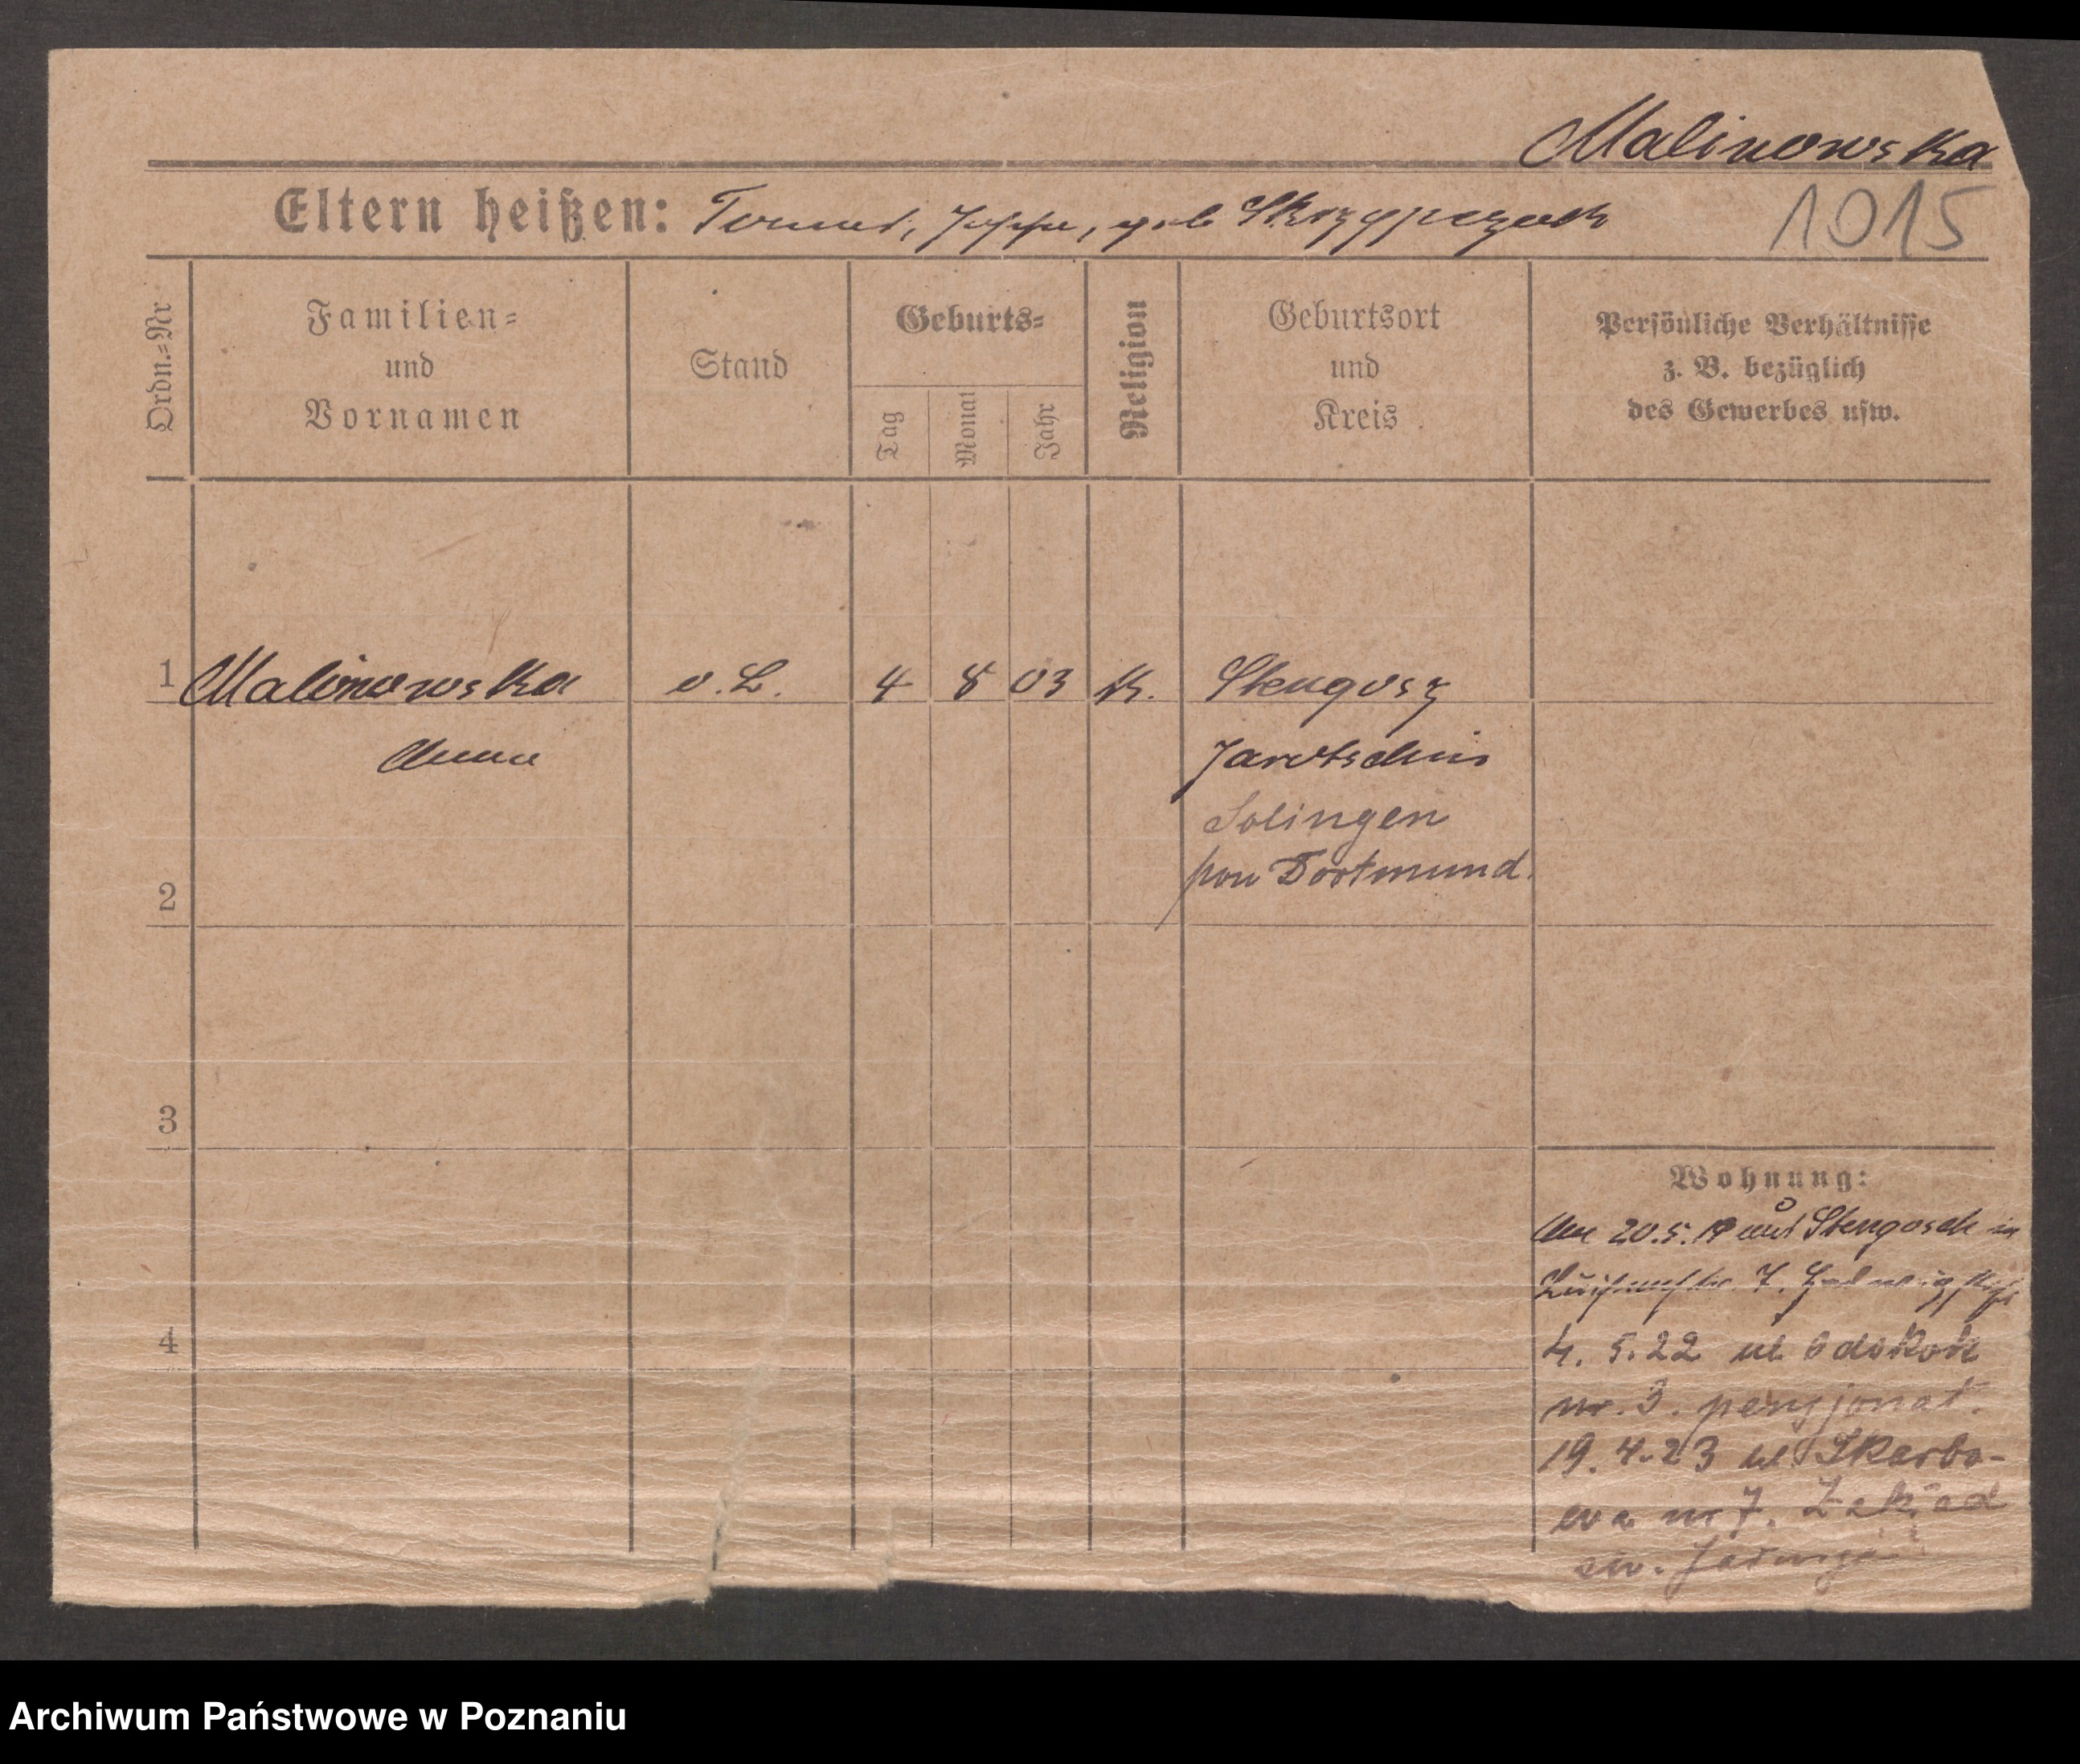 Malinowska
1015
Eltern heißen: geb Skrzypczak
Ordn.=Nr
Familien=
und
Vornamen
Stand
Geburts=
Tag
Monat
Jahr
Religion
Geburtsort
und
Kreis
Persönliche Verhältnisse
z. B. bezüglich
des Gewerbes usw.
1 Malinowska o. L. 4 8 03 K. Stengosz
Anna Jarotschin
Solingen
pow Dortmund.
2
3
4
Wohnung:
20.5.19 aus Stengosch in
7.
4. 5.22 ul. Odskok
nr. 3. pensjonat.
19.4.23 ul Skarbo-
wa nr 7. Zakład
św. Jadwigi
Archiwum Państwowe w Poznaniu